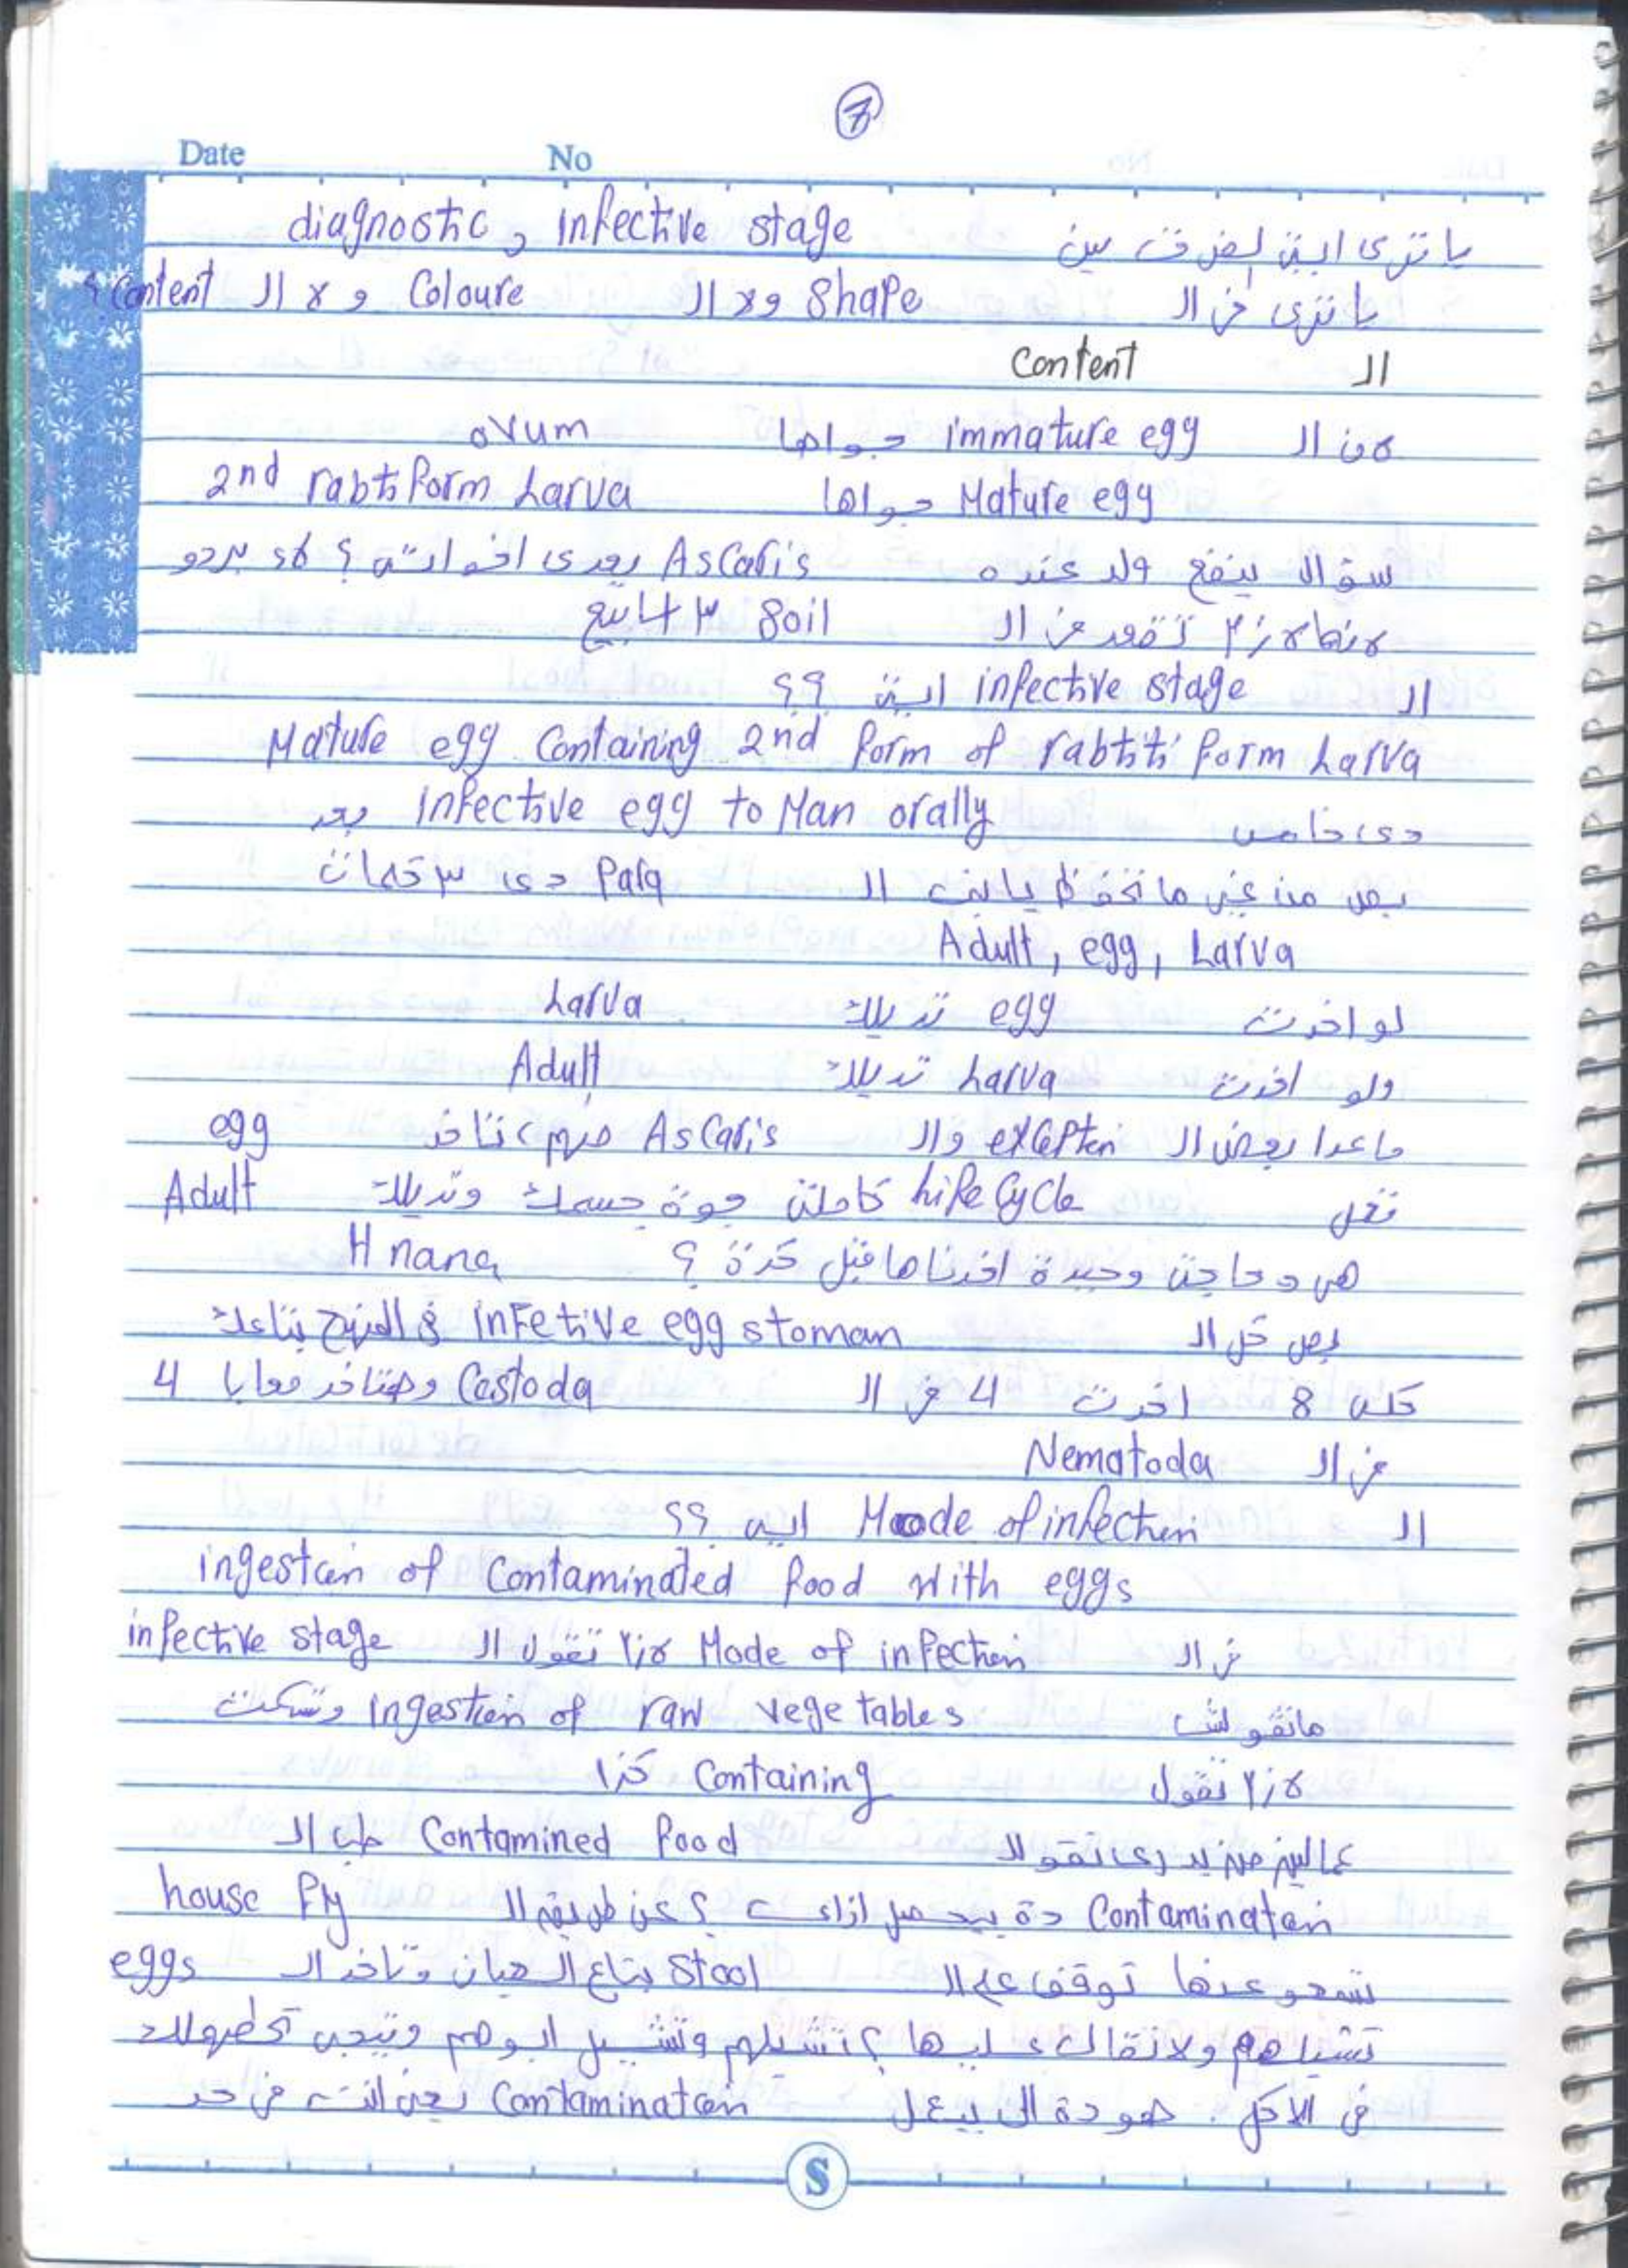 7
Date No
يا ترى اية الفرق بين diagnostic و infective stage
يا ترى في ال Shape ولا ال Coloure ولا ال Content ؟
ال Content
لان ال immature egg جواها ovum
Mature egg جواها 2nd rabtiform Larva
سؤال ينفع ولد عنده Ascaris يعدى اخواته ؟ لاء بردو
لانها لازم تقعد في ال Soil ٣ اسابيع
ال infective stage اية ؟؟
Mature egg Containing 2nd form of rabtiti form Larva
دى خامس infective egg to Man orally بعد
بص من غير ما تحفظ يا ابنى ال Para دى ٣ حاجات
Adult, egg, Larva
لو اخدت egg تديلك Larva
ولو اخدت Larva تديلك Adult
ما عدا بعض ال exception وال Ascaris منهم تاخد egg
تعمل Life Cycle كاملة جوة جسمك وتديلك Adult
هى دى حاجة وحيدة اخدناها قبل كدة ؟ H nana
بص كل ال infetive egg stoman في المنهج بتاعك
كله 8 اخدت 4 في ال Cestoda وهتاخد معايا 4
في ال Nematoda
ال Moode of infection ايه ؟؟
ingestion of Contaminated food with eggs
في ال Mode of infection لازم تقول ال infective stage
ماتقولش ingestion of raw vegetables وتسكت
لازم تقول Containing كذا
عاليز مزيد دى تقولا Contamined food طب ال
Contamination دة بيحصل ازاى ؟ عن طريق ال house fly
تسمحو عنها توقف على ال Stool بتاع العيان وتاخد ال eggs
تشيلهم ولا تقال عليها ؟ تشيلهم وتشيل ابوهم وتيجى تحطهولك
في الاكل . هو دة الى بيعمل Contamination يعنى انت في حد
S